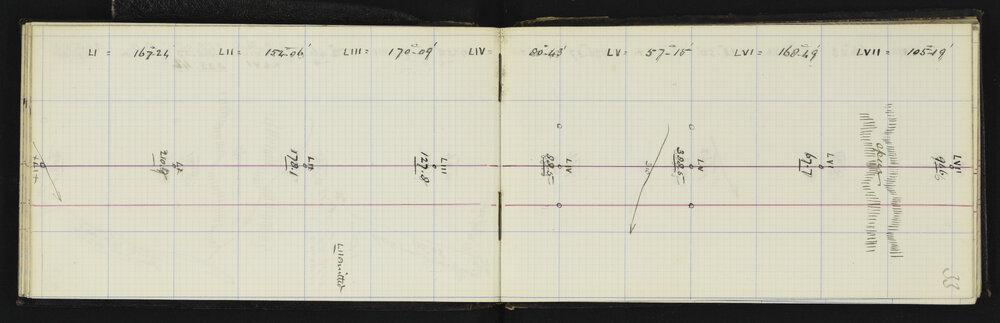 LI = 167-24 LII = 152-06' LIII = 170-09' LIV = 80-43' LV = 57-15' LVI = 168-49' LVII = 105-19'
LIII
127.8
LIV
88.5
LV
388.5
LVI
67.7
LVII
946
178.1
210.9
LII omitted
33